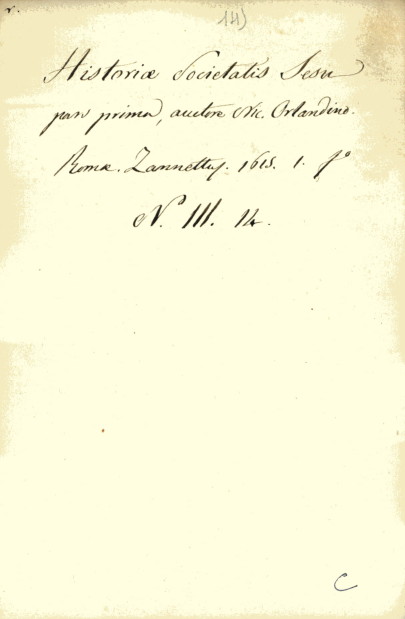 14)
Historiæ Societatis Jesu
pars prima, auctore Nic. Orlandino.
Romæ. Zannettus. 1615. 1. fº
N. III. 14.
C